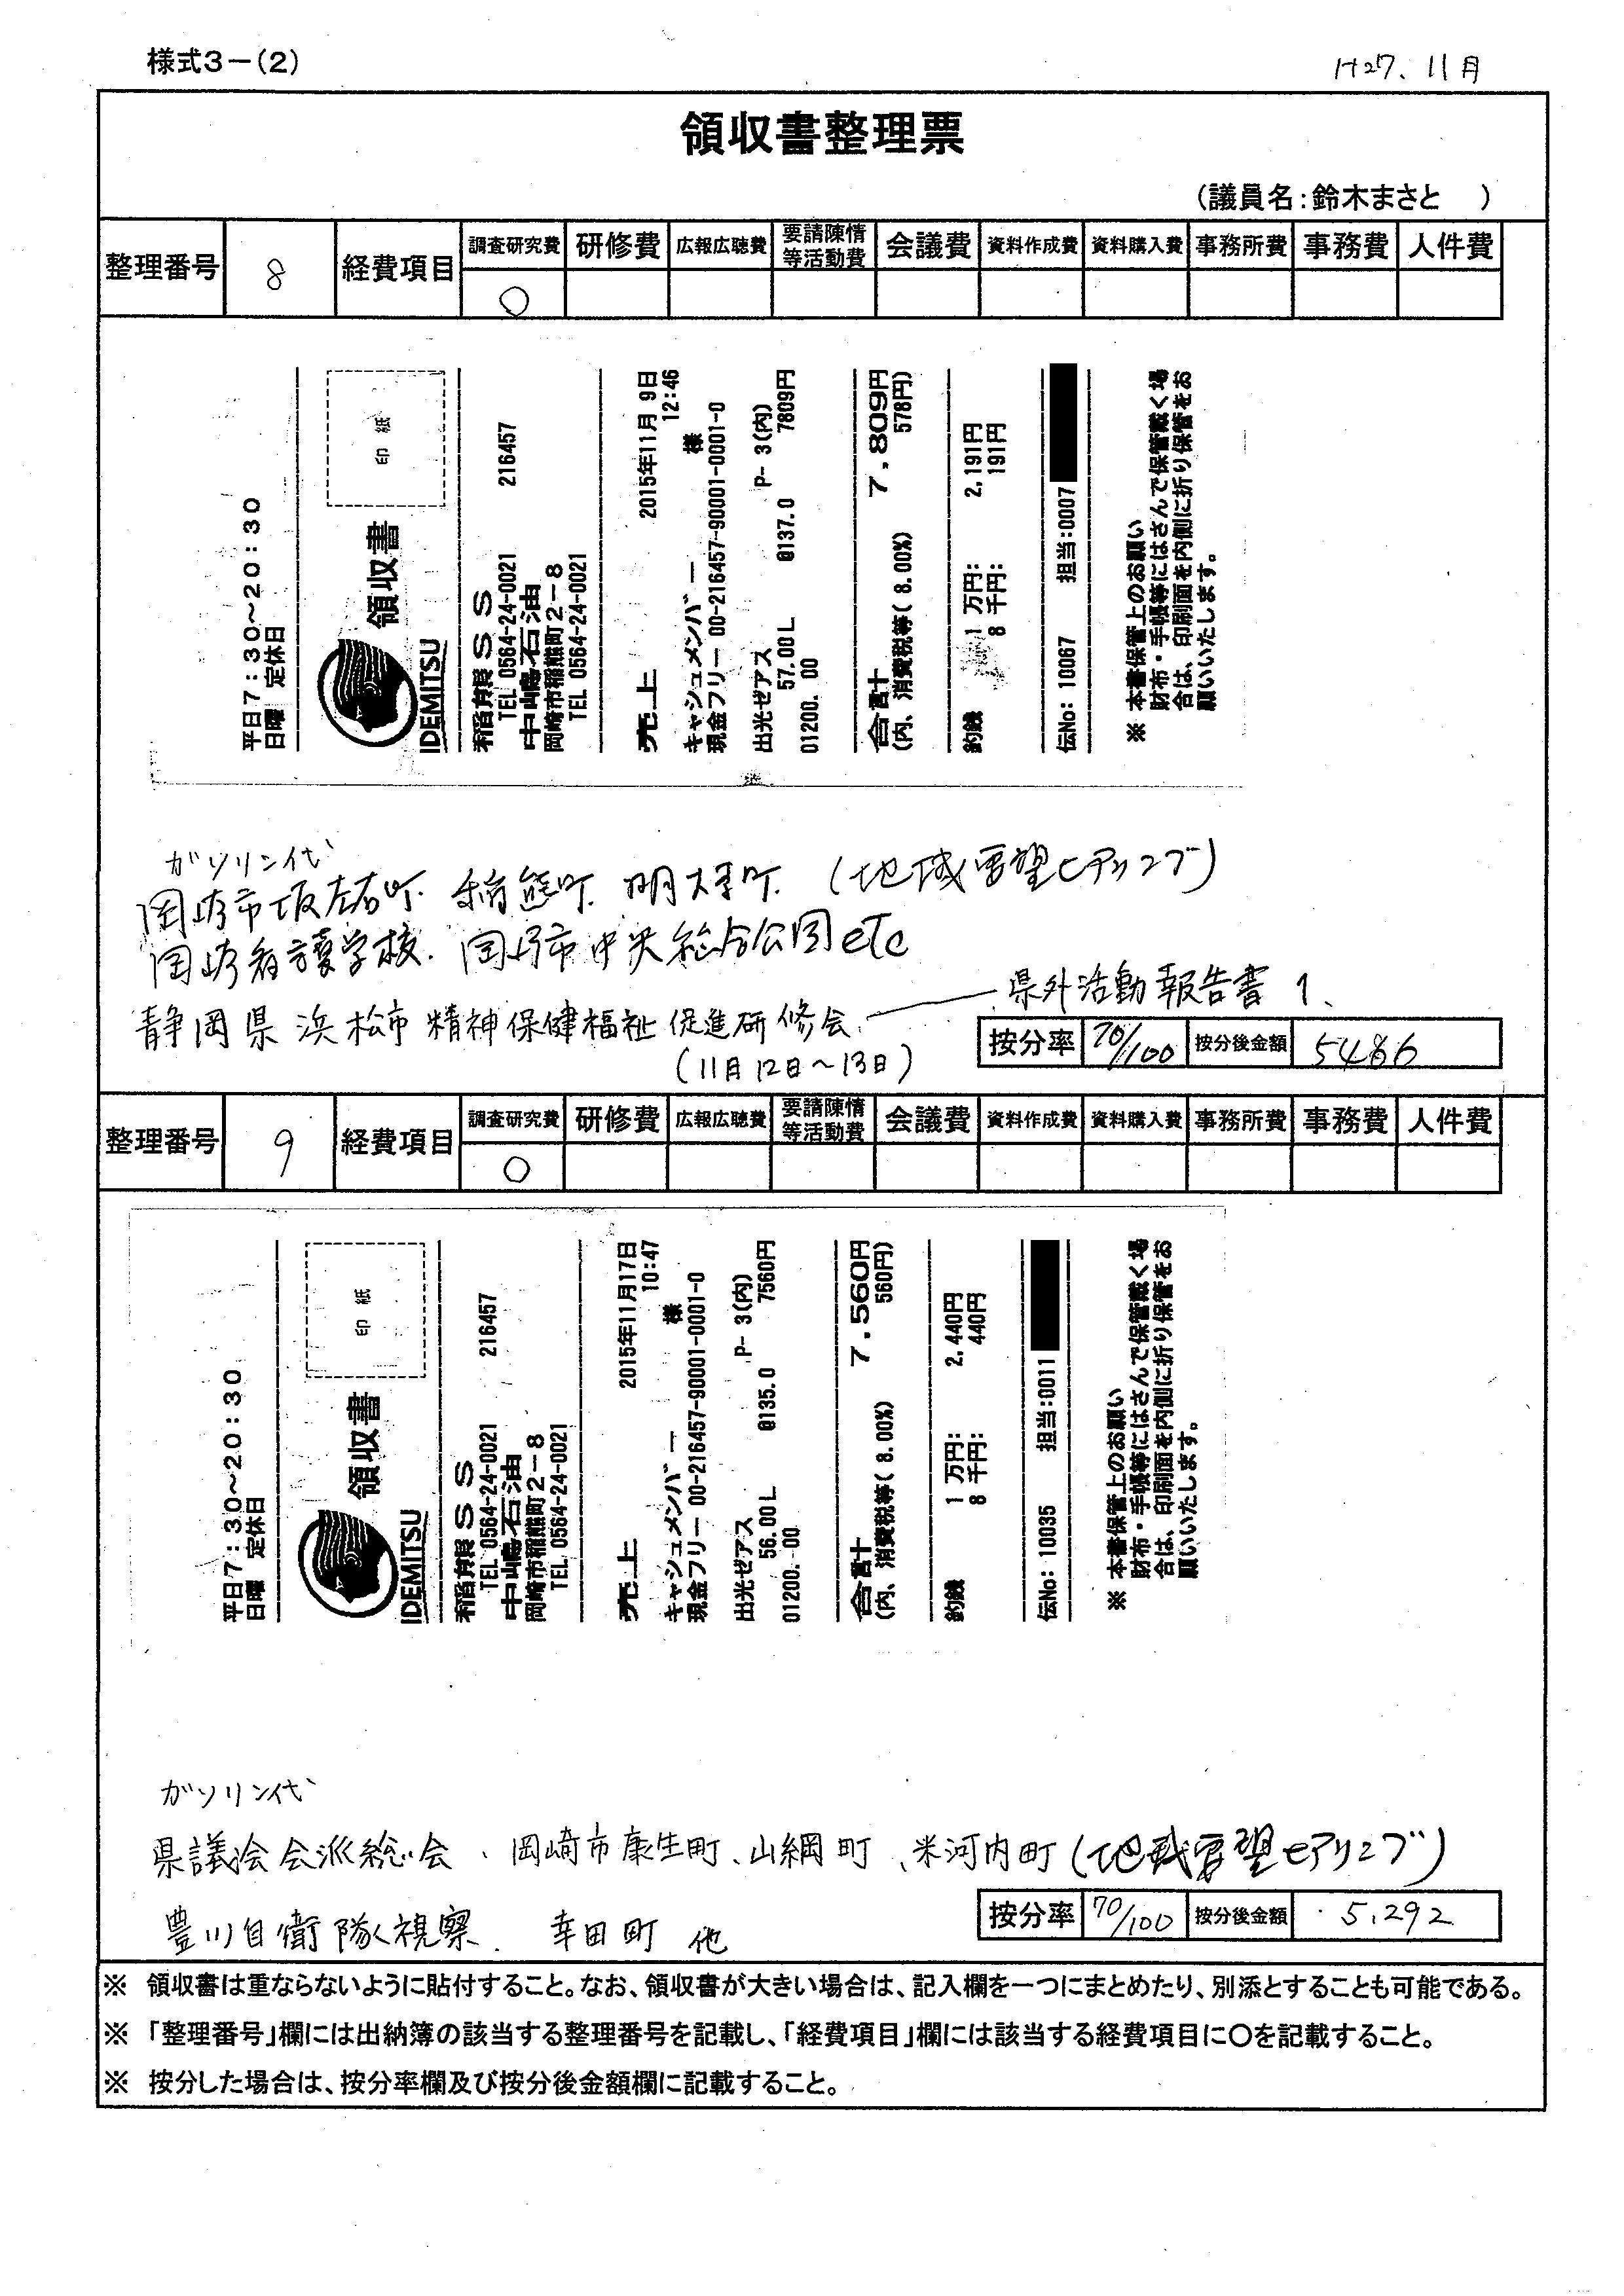 様式3－(2)
H27、11月
領収書整理票
(議員名：鈴木まさと　)
整理番号 8 経費項目 調査研究費 研修費 広報広聴費 要請陳情等活動費 会議費 資料作成費 資料購入費 事務所費 事務費 人件費
○
平日7：30～20：30
日曜 定休日
IDEMITSU 領収書 印 紙
稲熊SS 216457
TEL 0564-24-0021
中嶋石油
岡崎市稲熊町2－8
TEL 0564-24-0021
売上 2015年11月 9日
12:46
キャシュメンバー 様
現金フリー 00-216457-90001-0001-0
出光ゼアス P- 3(内)
57.00L @137.0 7809円
01200. 00
合計 7,809円
(内、消費税等( 8.00%) 578円)
釣銭 1 万円： 2,191円
8 千円： 191円
伝No: 10067 担当:0007
※ 本書保管上のお願い
財布・手帳等にはさんで保管戴く場
合は、印刷面を内側に折り保管をお
願いいたします。
ガソリン代
岡崎市 稲熊町、明大寺町、(地域要望ヒアリング)
岡崎看護学校、岡崎市中央総合公園etc
静岡県浜松市精神保健福祉促進研修会 県外活動報告書 1、
(11月12日～13日)
按分率 70/100 按分後金額 5486
整理番号 9 経費項目 調査研究費 研修費 広報広聴費 要請陳情等活動費 会議費 資料作成費 資料購入費 事務所費 事務費 人件費
○
平日7：30～20：30
日曜 定休日
IDEMITSU 領収書 印 紙
稲熊SS 216457
TEL 0564-24-0021
中嶋石油
岡崎市稲熊町2－8
TEL 0564-24-0021
売上 2015年11月17日
10:47
キャシュメンバー 様
現金フリー 00-216457-90001-0001-0
出光ゼアス P- 3(内)
56.00L @135.0 7560円
01200. 00
合計 7,560円
(内、消費税等( 8.00%) 560円)
釣銭 1 万円： 2,440円
8 千円： 440円
伝No: 10035 担当:0011
※ 本書保管上のお願い
財布・手帳等にはさんで保管戴く場
合は、印刷面を内側に折り保管をお
願いいたします。
ガソリン代
県議会会派総会、岡崎市康生町、山綱町、米河内町(地域要望ヒアリング)
豊川自衛隊視察、幸田町 他
按分率 70/100 按分後金額 5,292
※ 領収書は重ならないように貼付すること。なお、領収書が大きい場合は、記入欄を一つにまとめたり、別添とすることも可能である。
※ 「整理番号」欄には出納簿の該当する整理番号を記載し、「経費項目」欄には該当する経費項目に○を記載すること。
※ 按分した場合は、按分率欄及び按分後金額欄に記載すること。